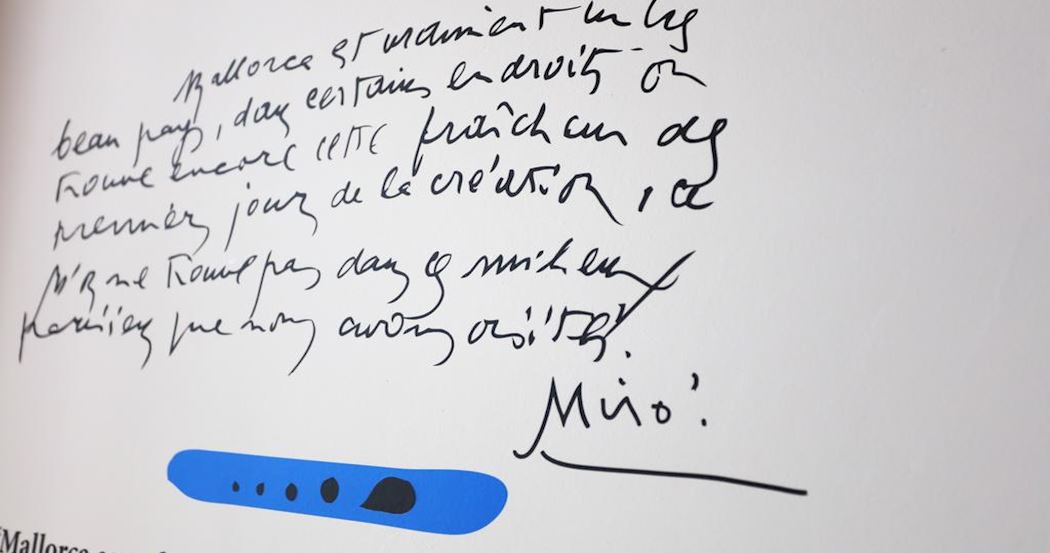 Mallorca est vraiment un très
beau pays, dans certains endroits on
trouve encore cette fraîcheur des
premiers jours de la création, ce
ne trouve pas dans ces milieux
parisiens que nous avons visités.
Miró.
"Mallorca